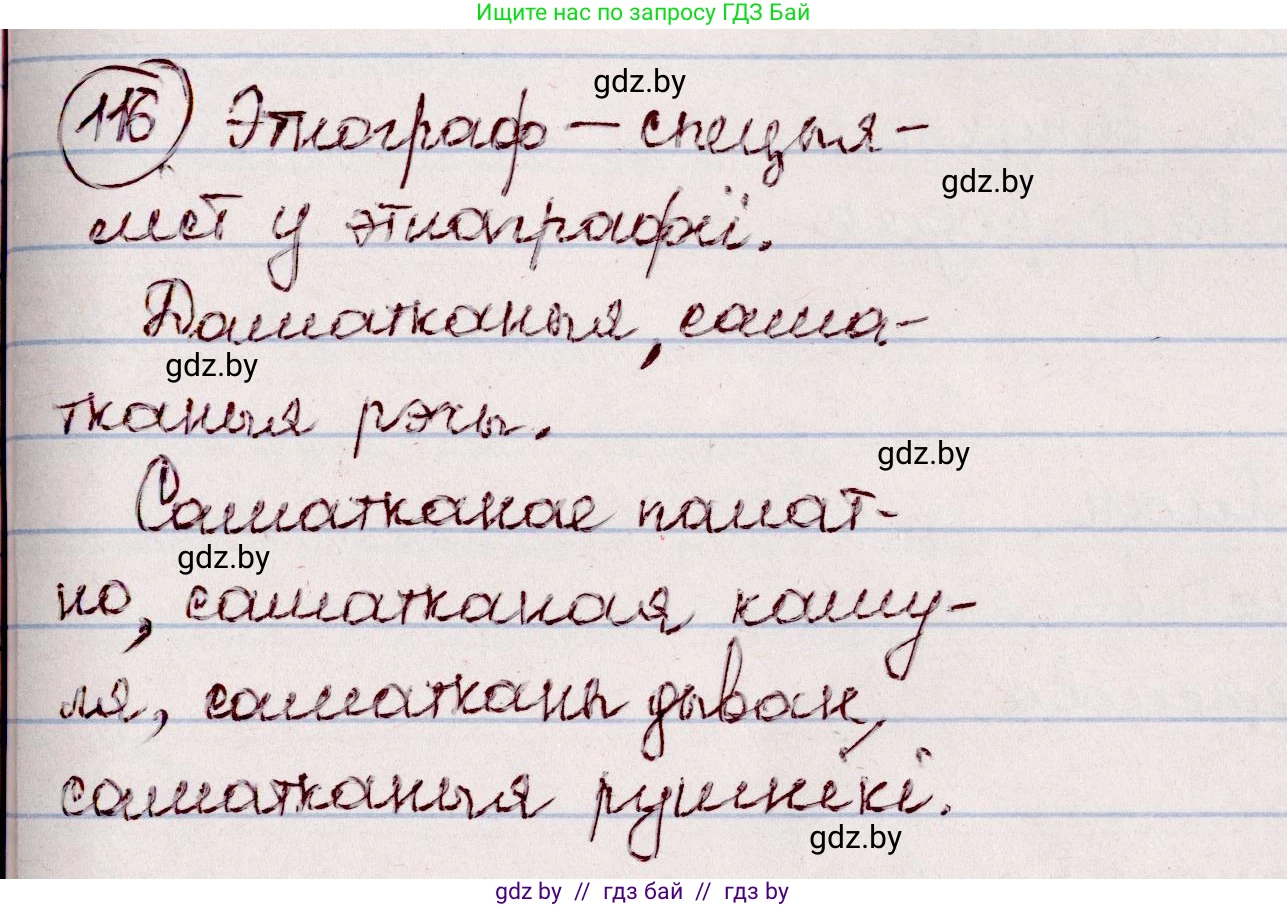 Ищите нас по запросу ГДЗ Бай
gdz.by
116 Этнограф – спецыя-
gdz.by
ліст у этнаграфіі.
Даматканыя, сама-
gdz.by
тканыя рэчы.
gdz.by
Саматканае палат-
gdz.by
но, саматканая кашу-
ля, саматканы дыван,
саматканыя ручнікі.
gdz.by
gdz by // гдз бай // гдз by